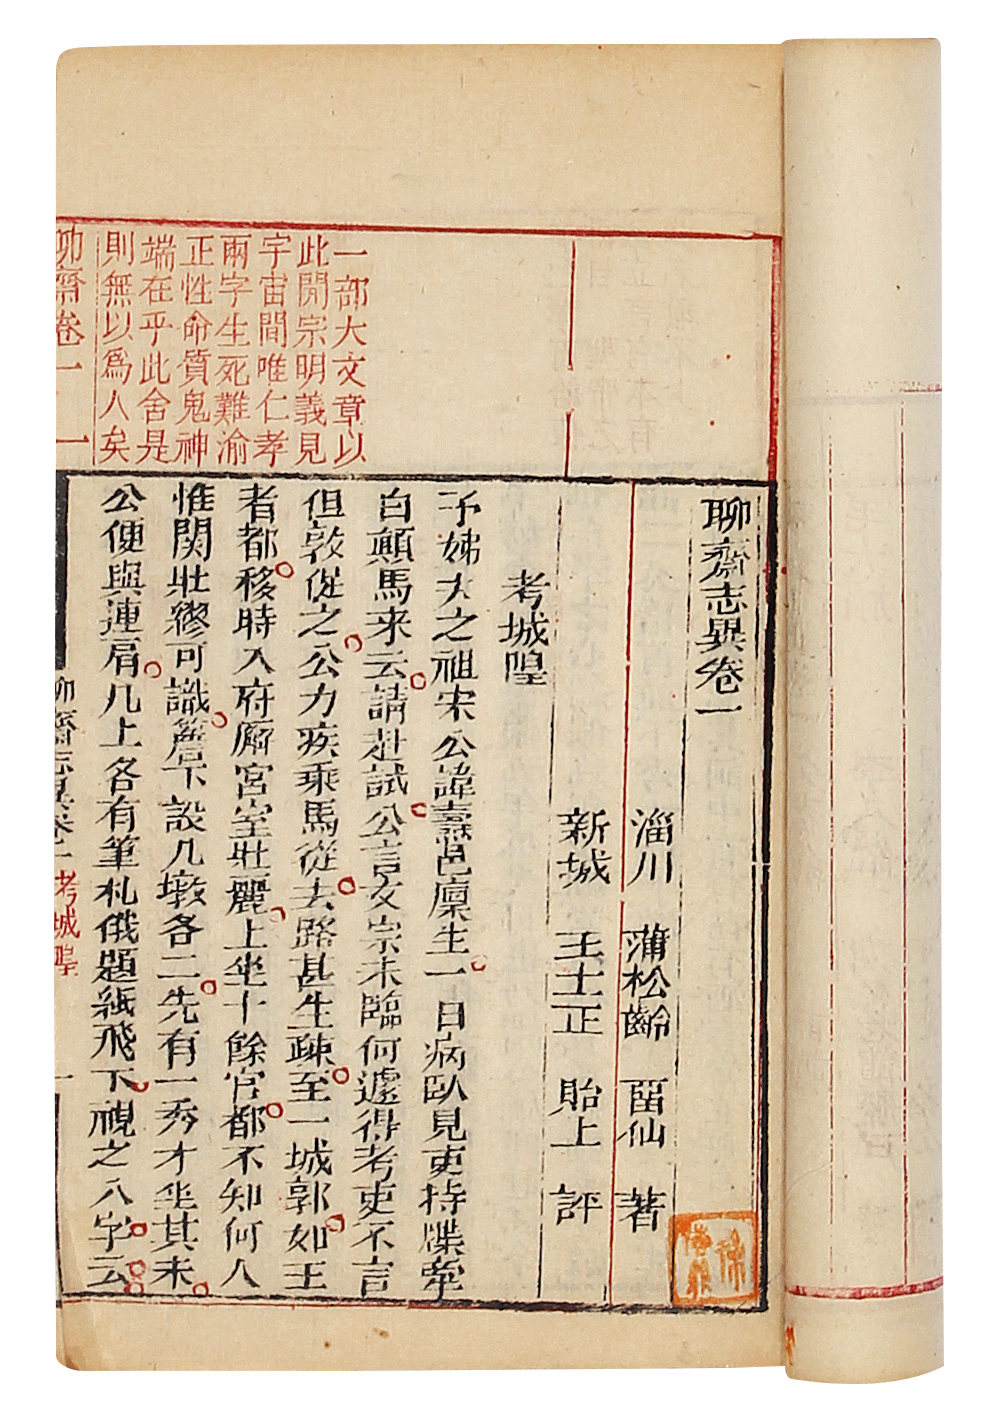 聊齋志異卷一
淄川　蒲松齡　畱仙　著
新城　王士正　貽上　評
考城隍
予姊夫之祖宋公諱燾邑廩生一日病臥見吏持牒牽
白顛馬来云請赴試公言文宗未臨何遽得考吏不言
但敦促之公力疾乘馬從去路甚生疎至一城郭如王
者都移時入府廨宮室壯麗上坐十餘官都不知何人
惟関壯繆可識簷下設几墩各二先有一秀才坐其末
公便與連肩几上各有筆札俄題紙飛下視之八字云
一部大文章以
此開宗明義見
宇宙間唯仁孝
兩字生死難渝
正性命質鬼神
端在乎此舍是
則無以爲人矣
聊齋卷一　一
聊齋志異卷一　考城隍　一